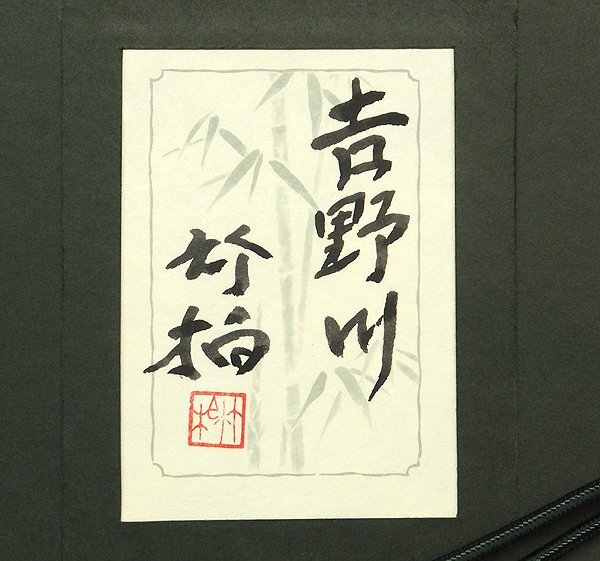 吉野川
竹柏